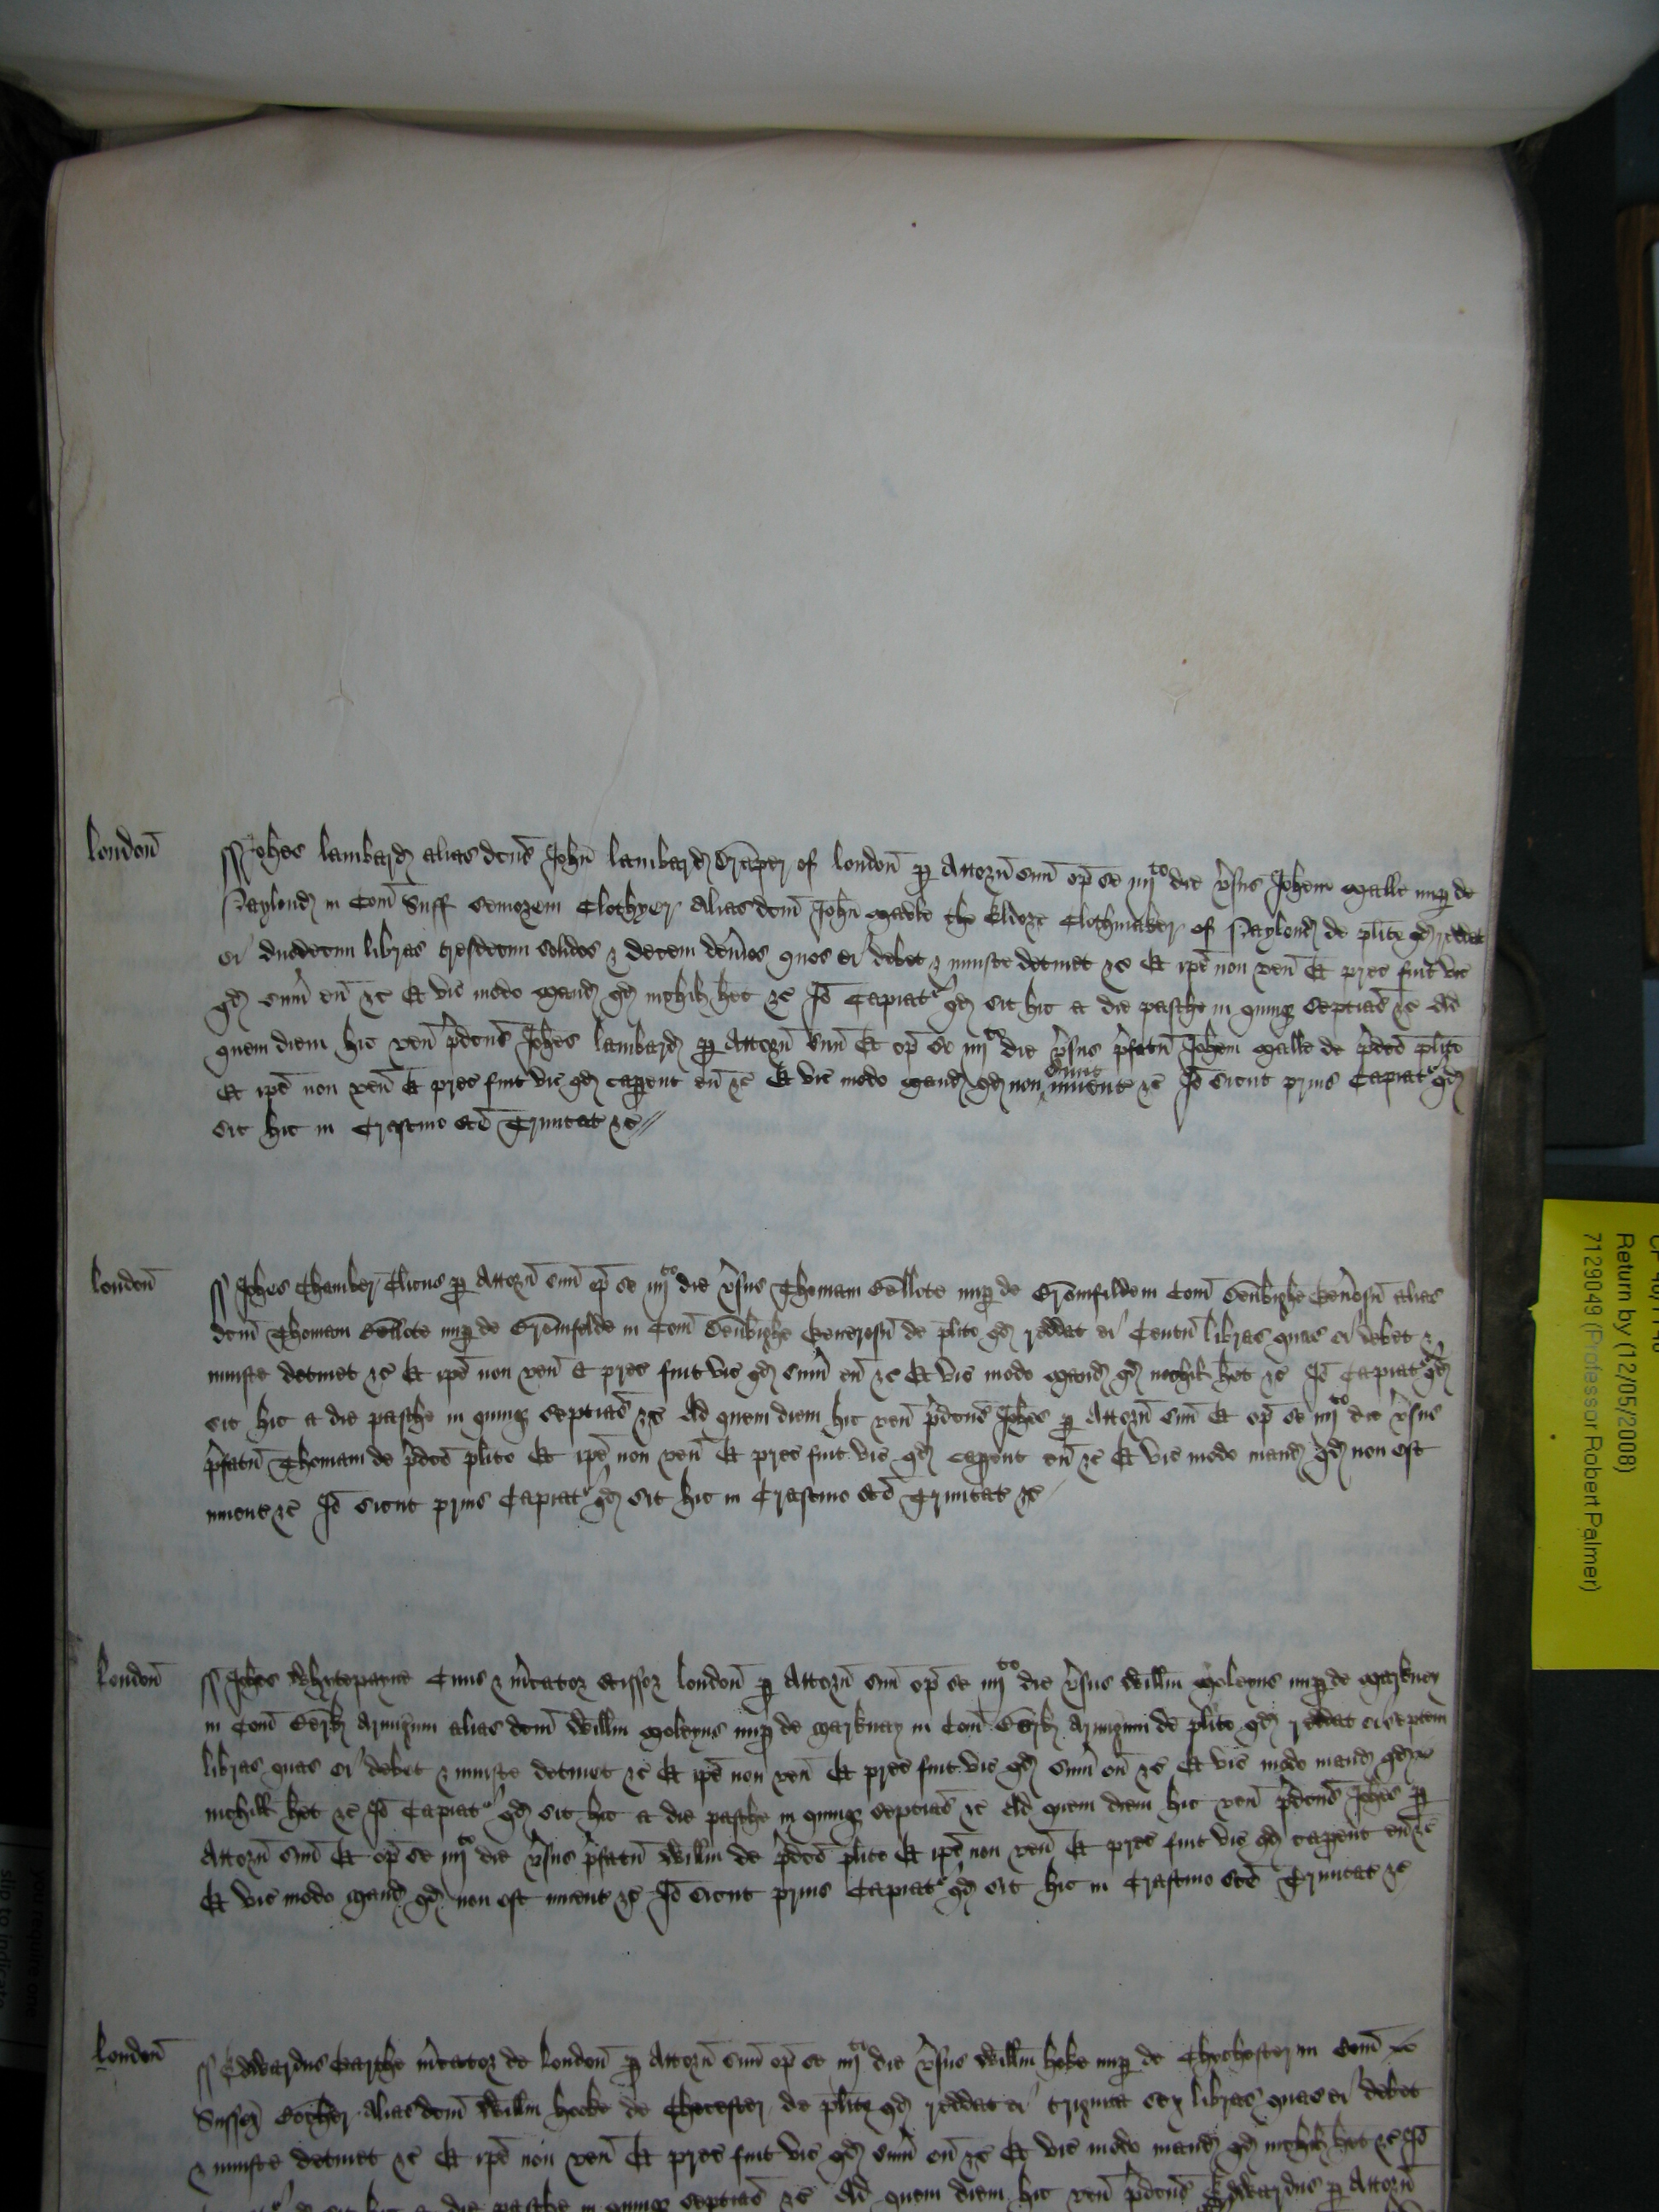 london̄
Joh̄es lambard alias dc̄us John̄ lambard Draper of london̄ p Attorn̄ suū op̄ se iiijto die v̄sus Joh̄em Malle nup de
Naylond in Com̄ Suff seniorem Clothyer alias dc̄m John̄ the Eldore Clothmaker of Naylond de plito qd reddat
ei duodecim libras tresdecim solidos & decem den̄ios quos ei debet & iniuste detinet &c̄ Et ip̄e non ven̄ Et prec̄ fuit vic̄
qd sum̄ eū &c̄ Et vic̄ modo Mand qd nichil h̄et &c̄ Jō Capiatr qd sit hic a die pasche in quinq septias̄ &c̄ Ad
quem diem hic ven̄ p̄dc̄us Joh̄es lambard p Attorn̄ suū Et op̄ se iiijto die v̄sus p̄fatū Joh̄em Malle de p̄dc̄o plito
Et ip̄e non ven̄ Et prec̄ fuit vic̄ qd caperet eū &c̄ Et vic̄ modo Mand qd non &c̄ Jō sicut prius Capiatr qd
sit hic in Crastino sc̄e Trinitat &c̄
london̄
Joh̄es Chamber Clicus p Attorn̄ suū op̄ se iiijto die v̄sus Thomam nup de in Com̄ Denbighe Gen̄osū alias
dc̄m Thomam nup de in Com̄ Denbighe Generosū de plito qd reddat ei Centū libras quas ei debet &
iniuste detinet &c̄ Et ip̄e non ven̄ Et prec̄ fuit vic̄ qd sum̄ eū &c̄ Et vic̄ modo Mand qd nichil h̄et &c̄ Jō Capiatr qd
sit hic a die pasche in quinq septias̄ &c̄ Ad quem diem hic ven̄ p̄dc̄us Joh̄es p Attorn̄ suū Et op̄ se iiijto die v̄sus
p̄fatū Thomam de p̄dc̄o plito Et ip̄e non ven̄ Et prec̄ fuit vic̄ qd caperet eū &c̄ Et vic̄ modo mand qd non est
inuent &c̄ Jō sicut prius Capiatr qd sit hic in Crastino sc̄e Trinitat &c̄
london̄
Joh̄es Whytepayne Ciuis & m̄cator scissor london̄ p Attorn̄ suū op̄ se iiijto die v̄sus Will̄m Moleyns nup de Markney
in Com̄ Berk Armigum alias dc̄m Will̄m Moleyns nup de Marknay in Com̄ Berk Armigum de plito qd reddat ei septem
libras quas ei debet & iniuste detinet &c̄ Et ip̄e non ven̄ Et prec̄ fuit vic̄ qd sum̄ eū &c̄ Et vic̄ modo mand qd
nichill h̄et &c̄ Jō Capiatr qd sit hic a die pasche in quinq septias̄ &c̄ Ad quem diem hic ven̄ p̄dc̄us Joh̄es p
Attorn̄ suū Et op̄ se iiijto die v̄sus p̄fatū Will̄m de p̄dc̄o plito Et ip̄e non ven̄ Et prec̄ fuit vic̄ qd caperet eū &c̄
Et vic̄ modo Mand qd non est inuent &c̄ Jō sicut prius Capiatr qd sit hic in Crastino sc̄e Trinitat &c̄
london̄
Edwardus m̄cator de london̄ p Attorn̄ suū op̄ se iiijto die v̄sus Will̄m hoke nup de Chechester in Com̄
Sussex alias dc̄m Will̄m hooke de Checester de plito qd reddat ei triginta sex libras quas ei debet
& iniuste detinet &c̄ Et ip̄e non ven̄ Et prec̄ fuit vic̄ qd sum̄ eū &c̄ Et vic̄ modo mand qd nichil h̄et &c̄ Jō
sit hic a die pasche in quinq septias̄ &c̄ Ad quem diem hic ven̄ p̄dc̄us Edwardus p Attorn̄
Return by (12/05/2008)
7129049 (Professor Robert Palmer)
you require one
slip to indicate